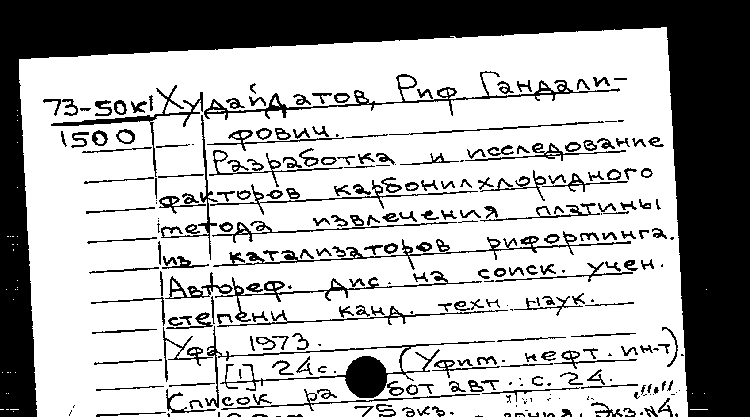 73-50к Худайдатов, Риф Гандали-
1500 фович.
Разработка и исследование
факторов карбонилхлоридного
метода извлечения платины
из катализаторов рифортинга.
Автореф. дис. на соиск. учен.
степени канд. техн. наук.
Уфа, 1973.
[1], 24с. (Уфим. нефт. ин-т).
Список работ авт.: с. 24.
75 экз. Экз. N4